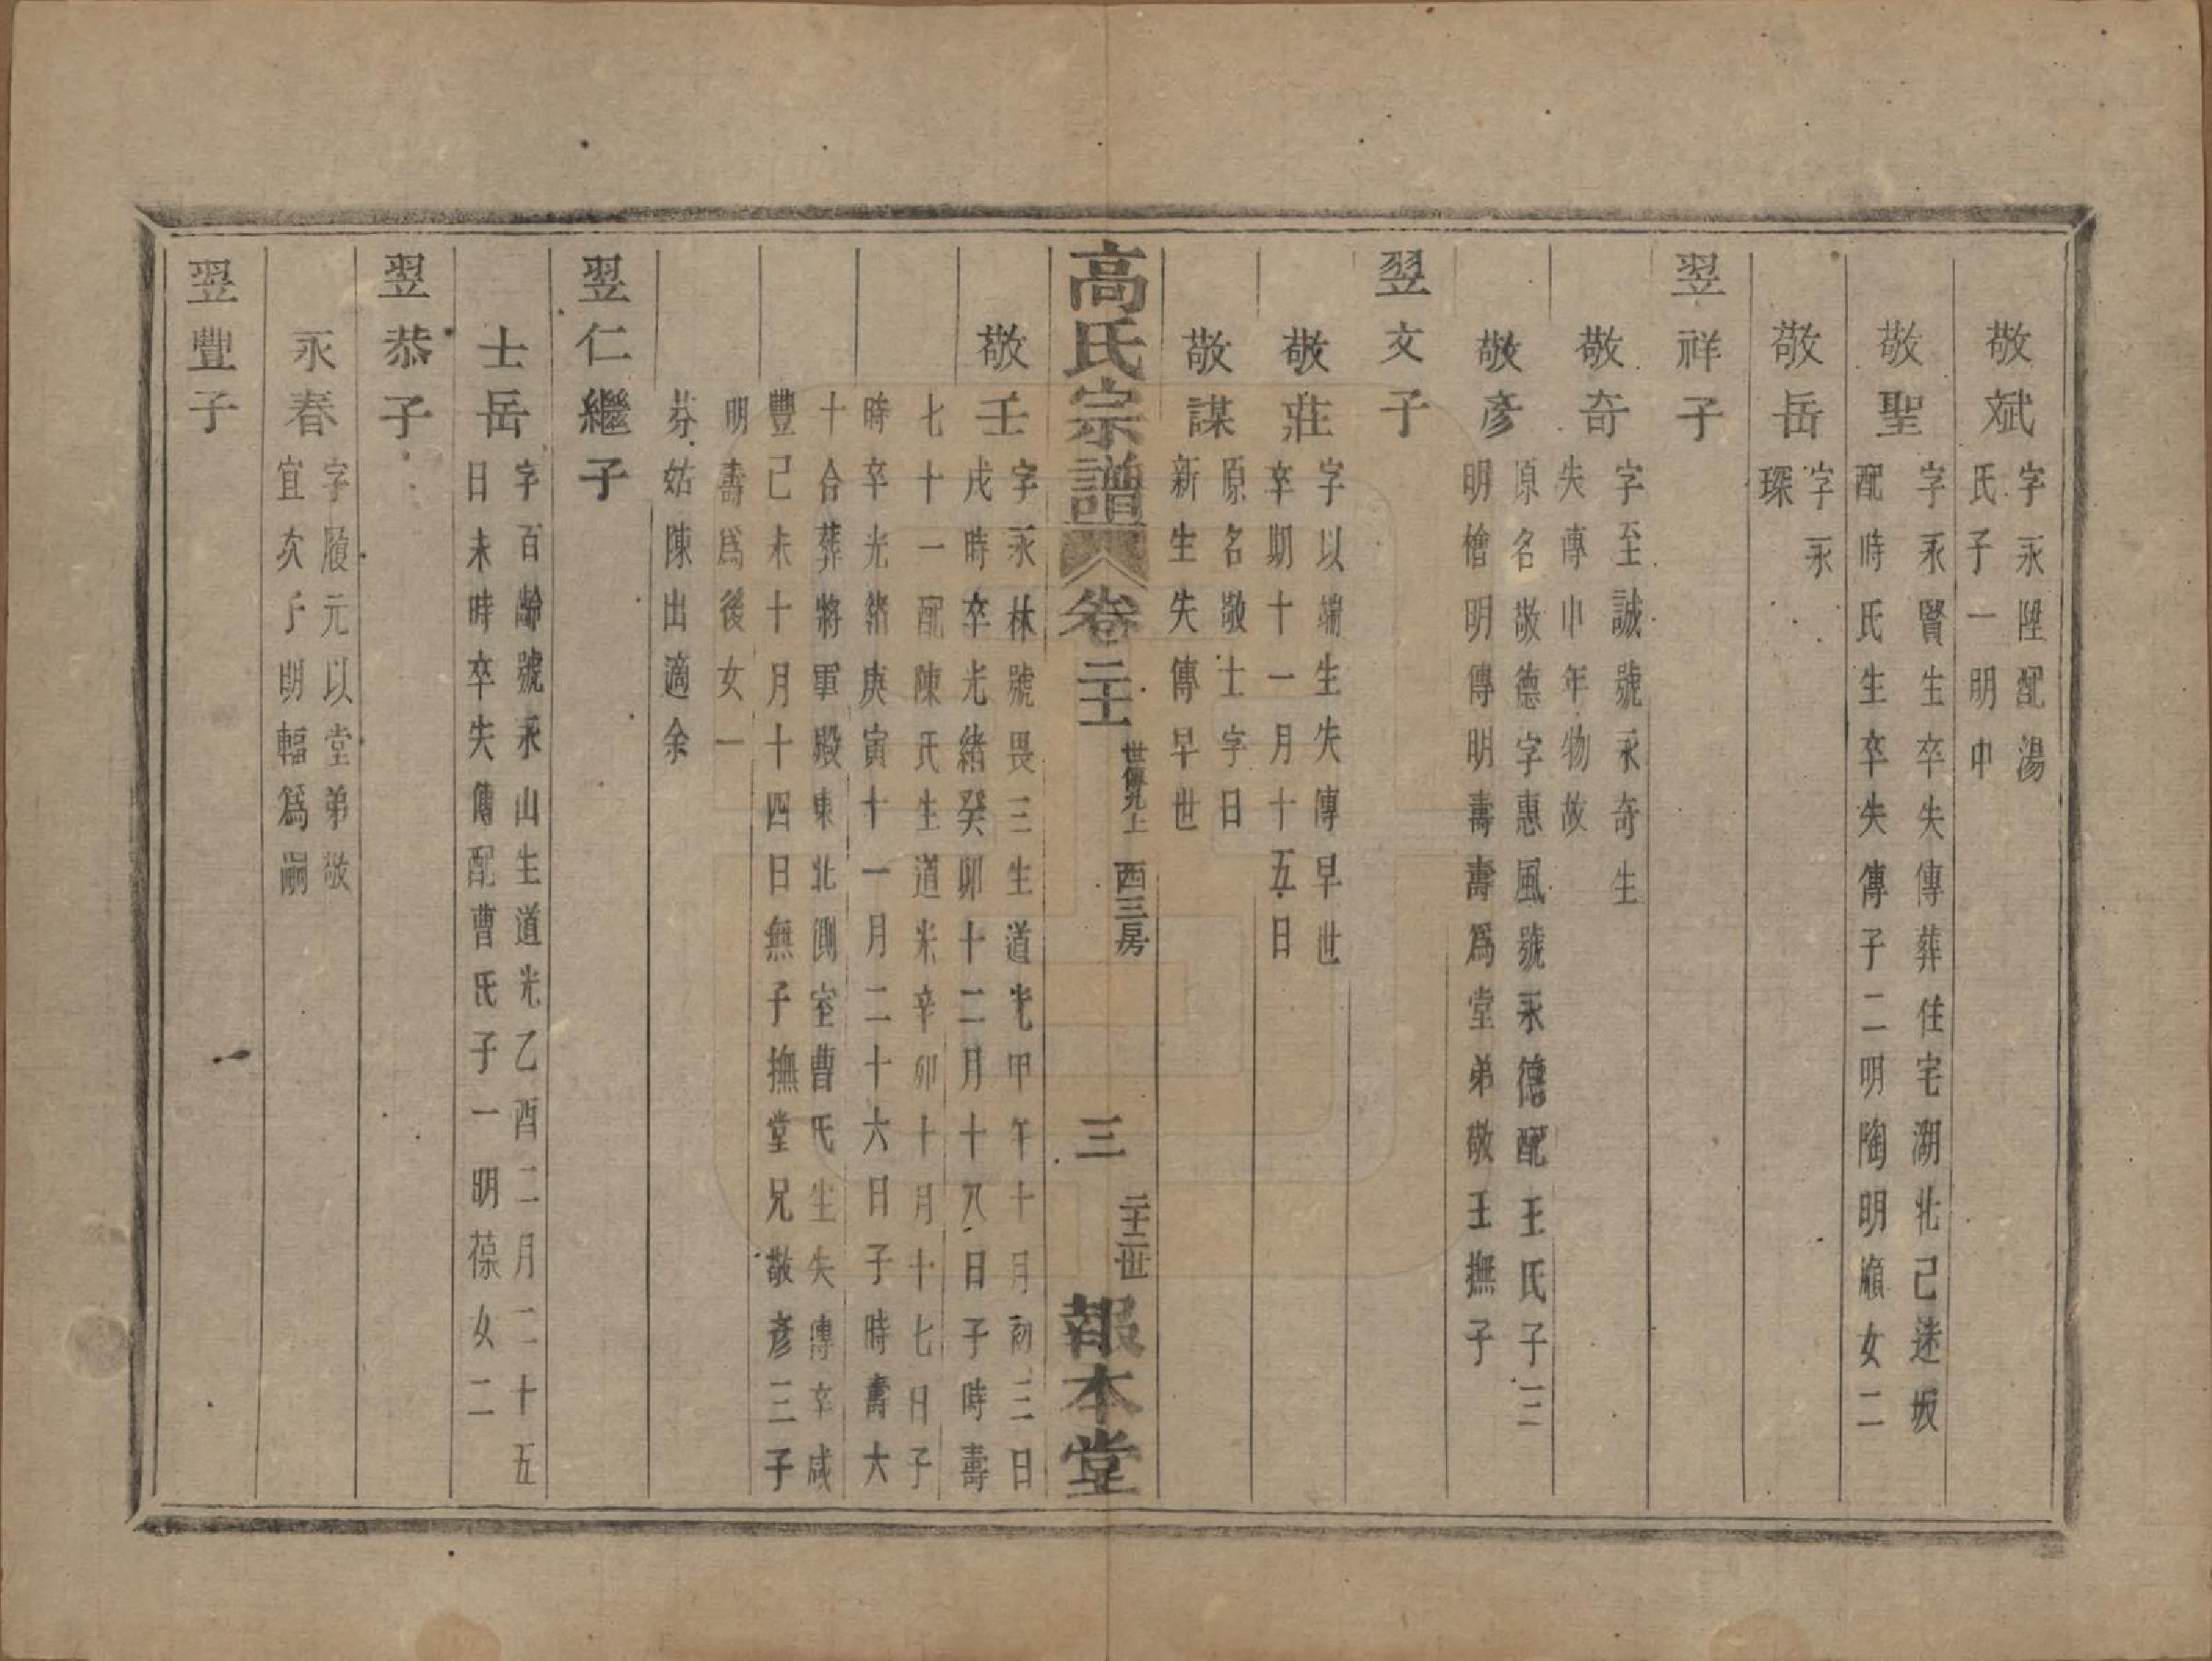 敬斌
字永陞配湯
氏子一明中
敬聖
字永賢生卒失傳葬住宅湖北己迷坂
配時氏生卒失傳子二明陶明順女二
敬岳
字永
琛
翌祥子
敬奇
字至誠號永奇生
失傳中年物故
敬彥
原名敬德字惠風號永德配王氏子三
明檜明傳明壽壽爲堂弟敬壬撫子
翌文子
敬莊
字以端生失傳早世
卒期十一月十五日
敬謀
原名敬士字日
新生失傳早世
高氏宗譜
卷二十一
世傳九上
西三房
三
二十三世
報本堂
敬壬
字永林號畏三生道光甲午十月初三日
戌時卒光緒癸卯十二月十八日子時壽
七十一配陳氏生道光辛卯十月十七日子
時卒光緒庚寅十一月二十六日子時壽六
十合葬將軍殿東北側室曹氏生失傳卒咸
豐己未十月十四日無子撫堂兄敬彥三子
明壽爲後女一
芬姑陳出適余
翌仁繼子
士岳
字百齡號永山生道光乙酉二月二十五
日未時卒失傳配曹氏子一明葆女二
翌恭子
永春
字履元以堂弟敬
宜次子明輻爲嗣
翌豐子